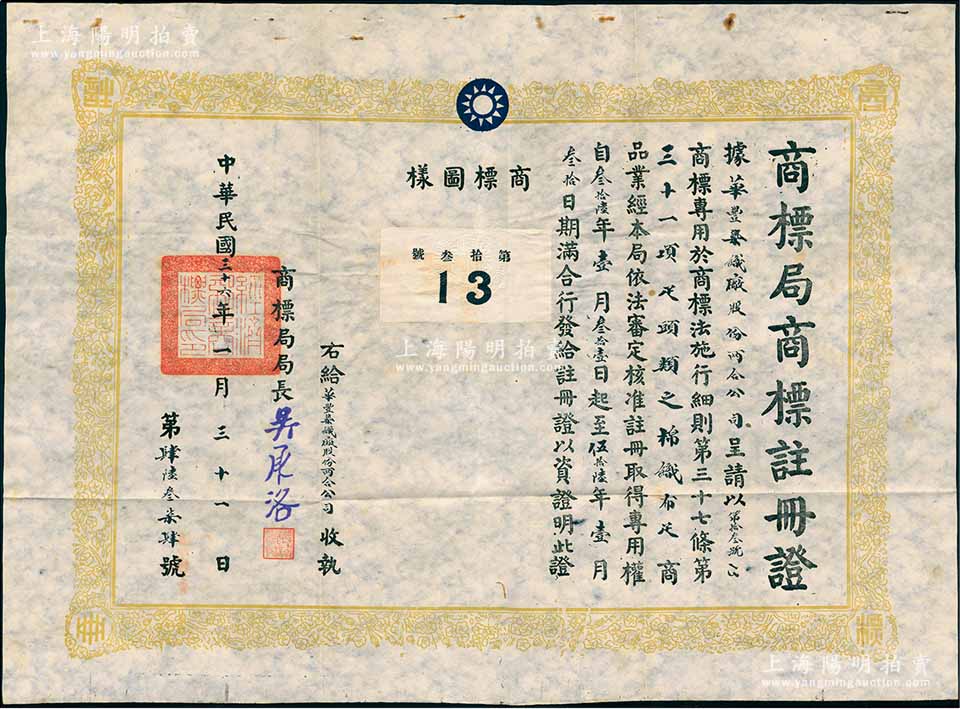 商標局商標註冊證
據華豐染織廠股份兩合公司呈請以第拾叁號
商標專用於商標法施行細則第三十七條第
三十一項疋頭類之棉織布疋商
品業經本局依法審定核准註冊取得專用權
自叁拾陸年壹月叁拾壹日起至伍拾陸年壹月
叁拾日期滿合行發給註冊證以資證明此證
商標圖樣
第拾叁號
13
右給華豐染織廠股份兩合公司收執
商標局局長吳承洛
中華民國三十六年一月三十一日
第肆陸叁柒肆號
商
標
註
冊
上海陽明拍賣
www.yangmingauction.com
上海陽明拍賣
www.yangmingauction.com
上海陽明拍賣
www.yangmingauction.com